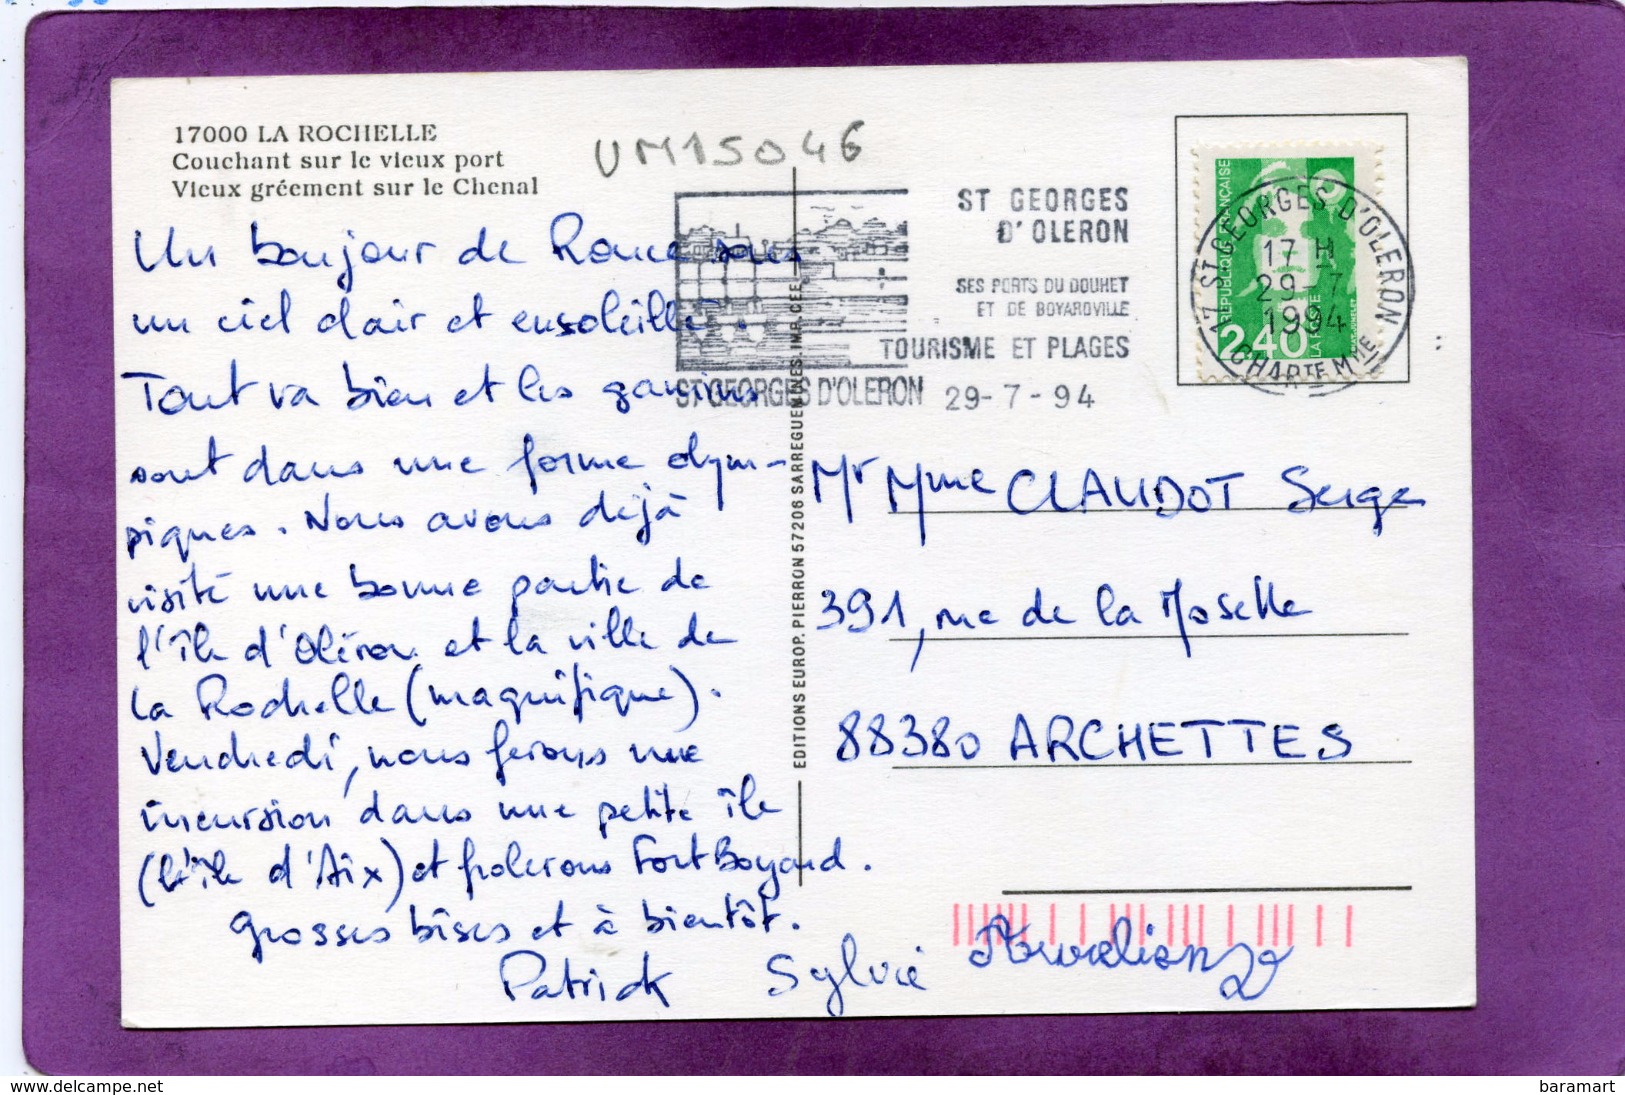 17000 LA ROCHELLE
Couchant sur le vieux port
Vieux gréement sur le Chenal
UM15046
Un bonjour de Ronce sous
un ciel clair et ensoleillé.
Tout va bien et les gamins
sont dans une forme olym-
piques. Nous avons déjà
visité une bonne partie de
l'île d'Oléron et la ville de
La Rochelle (magnifique).
Vendredi, nous ferons une
incursion dans une petite île
(l'île d'Aix) et frolerons Fort Boyard.
Grosses bises et à bientôt.
Patrick Sylvie Aurélien
EDITIONS EUROP. PIERRON 57206 SARREGUEMINES. IMP. CEE
ST GEORGES
D'OLERON
SES PORTS DU DOUHET
ET DE BOYARDVILLE
TOURISME ET PLAGES
ST GEORGES D'OLERON 29-7-94
REPUBLIQUE FRANÇAISE
2,40
LA POSTE
17 ST GEORGES D'OLERON
17 H
29-7
1994
CHARTE MME
Mr Mme CLAUDOT Serge
391, rue de la Moselle
88380 ARCHETTES
delcampe.net
baramart